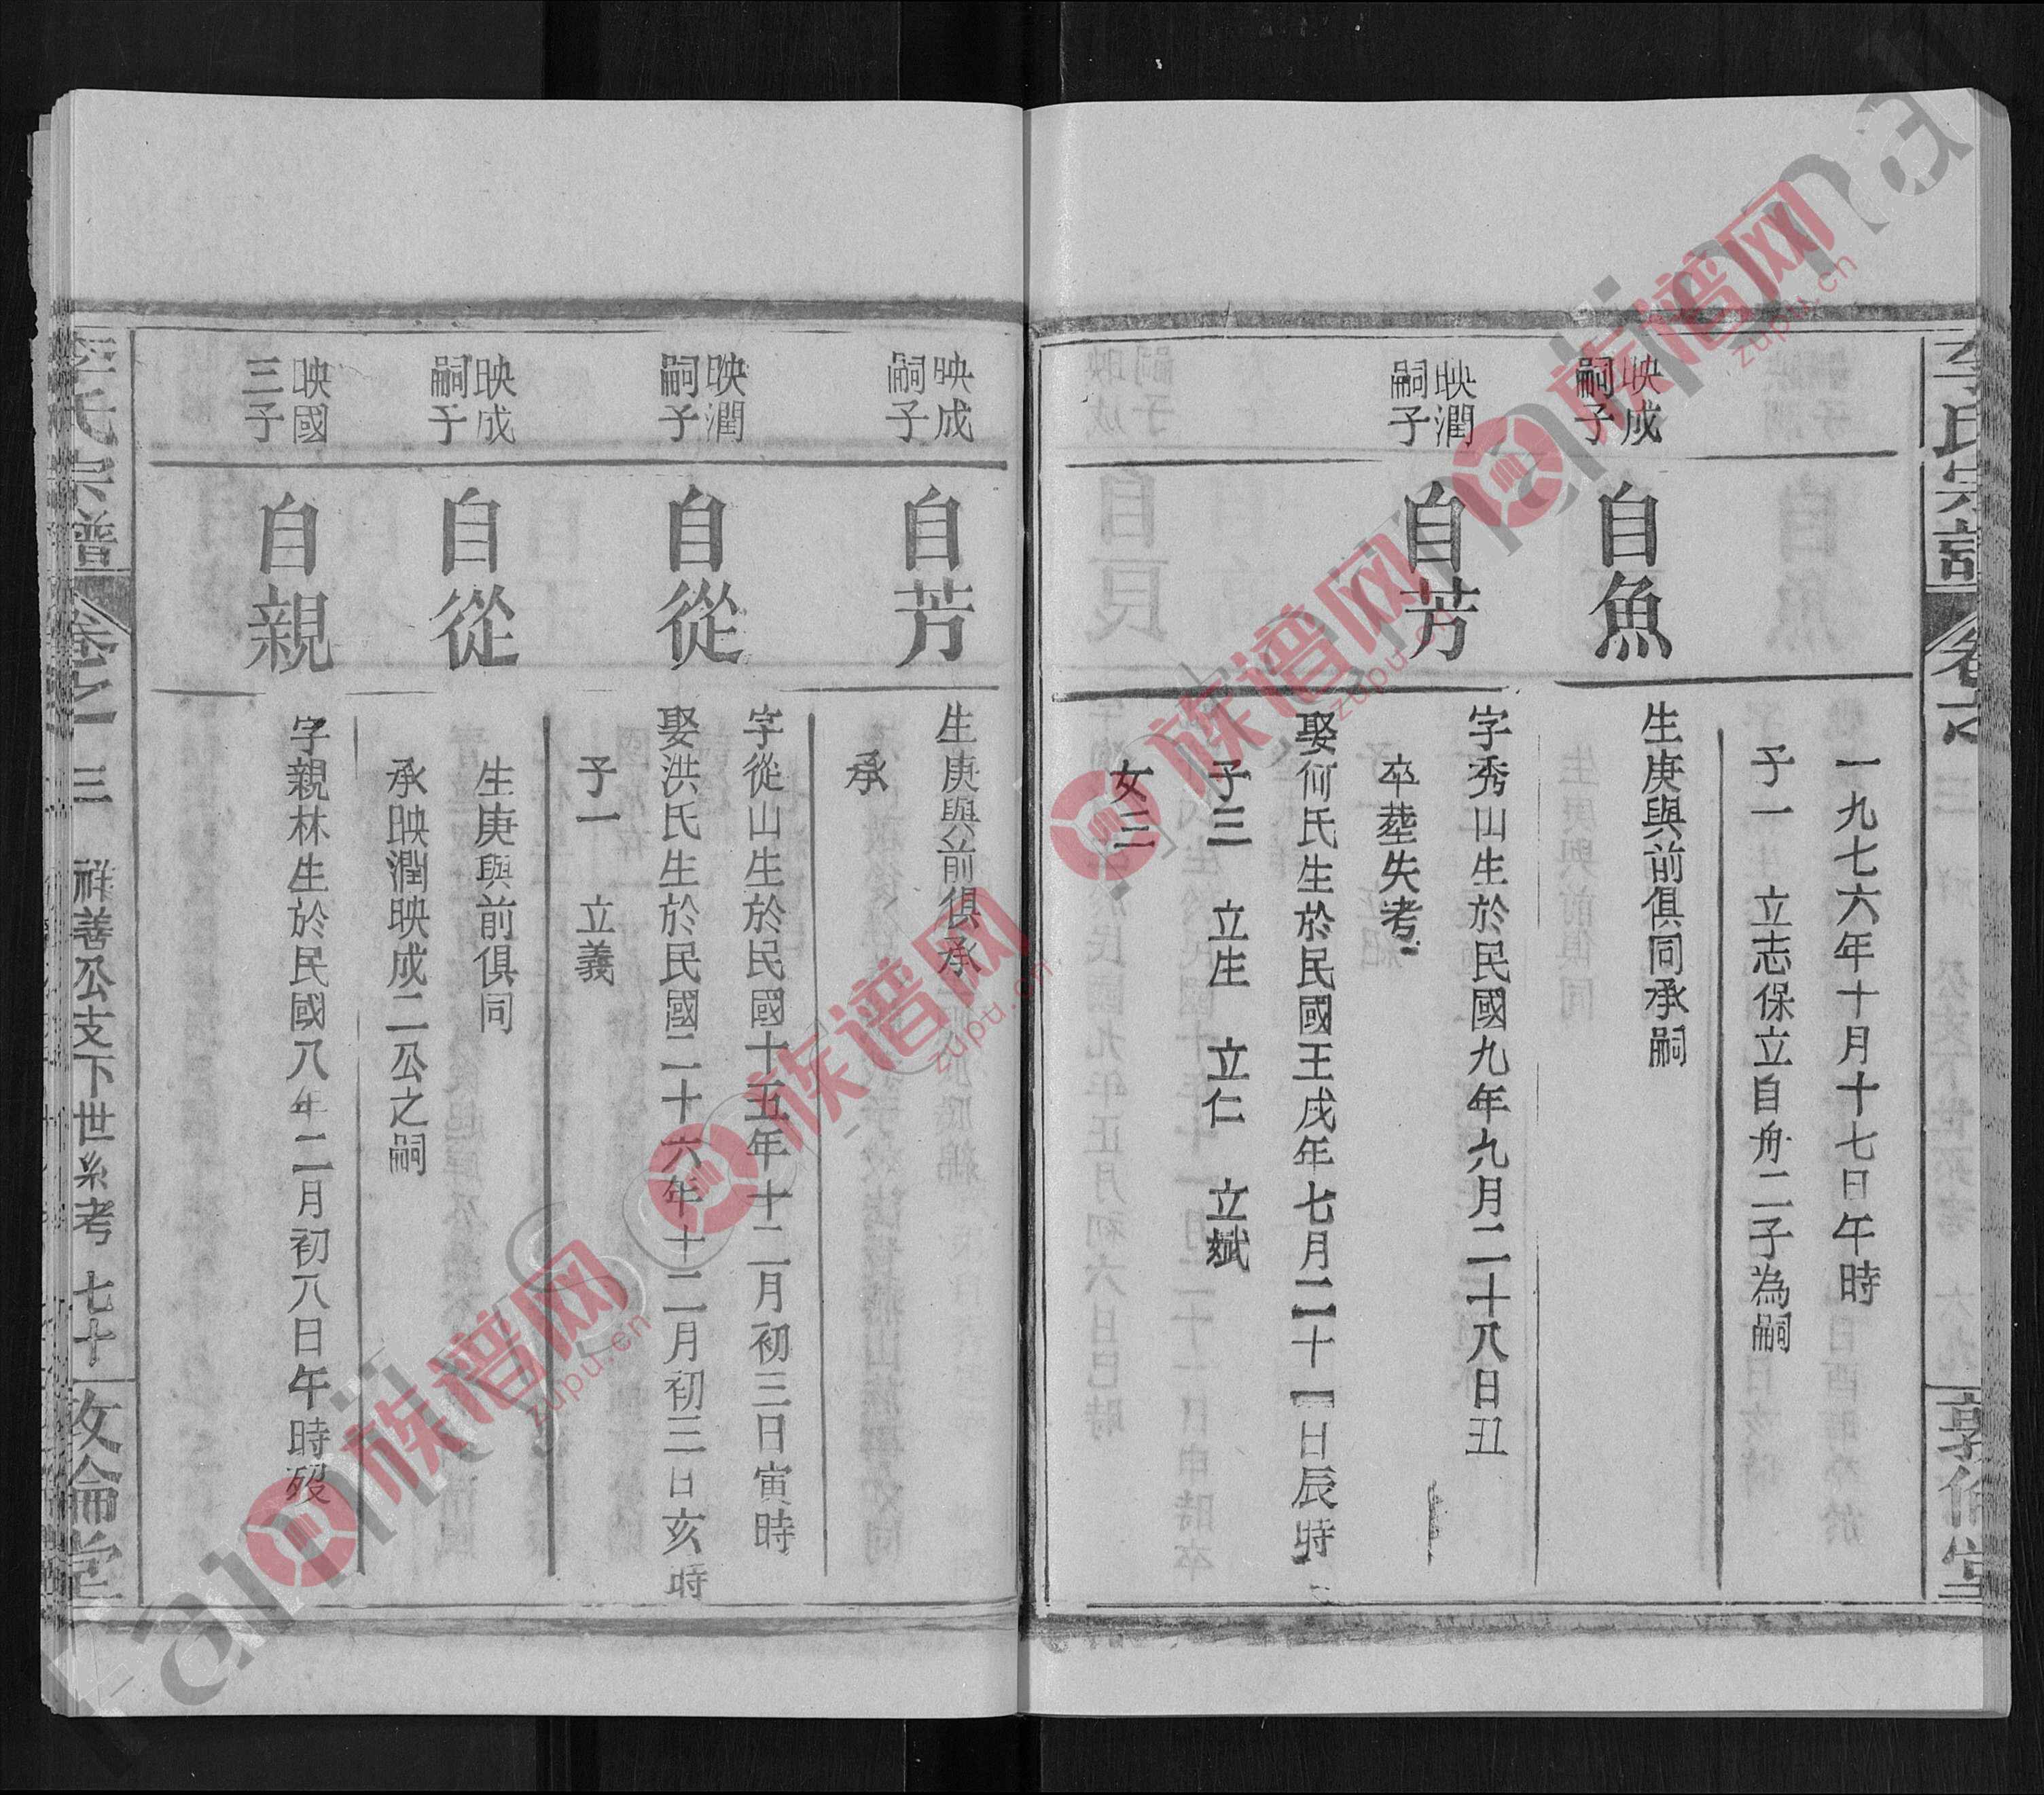 李氏宗譜
敦倫堂
一九七六年十月十七日午時
子一 立志保立自舟二子為嗣
映成
嗣子
自魚
生庚與前俱同承嗣
映潤
嗣子
自芳
字秀山生於民國九年九月二十八日丑
卒塟失考
娶何氏生於民國壬戌年七月二十一日辰時
子三 立生 立仁 立斌
女三
映成
嗣子
自芳
生庚與前俱承
承
映潤
嗣子
自從
字從山生於民國十五年十二月初三日寅時
娶洪氏生於民國二十六年十二月初三日亥時
子一 立義
映成
嗣子
自從
生庚與前俱同
承映潤映成二公之嗣
映國
三子
自親
字親林生於民國八年二月初八日午時歿
李氏宗譜
卷之一
三 祥善公支下世系考 七十
敦倫堂
族谱网
zupu.cn
族谱网
zupu.cn
族谱网
zupu.cn
族谱网
zupu.cn